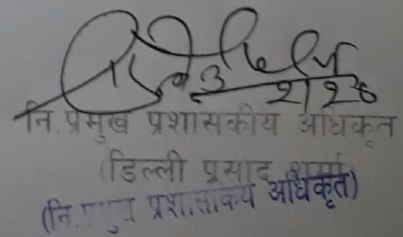 नि. प्रमुख प्रशासकीय अधिकृत
(डिल्ली प्रसाद शर्मा)
(नि. प्रमुख प्रशासकिय अधिकृत)